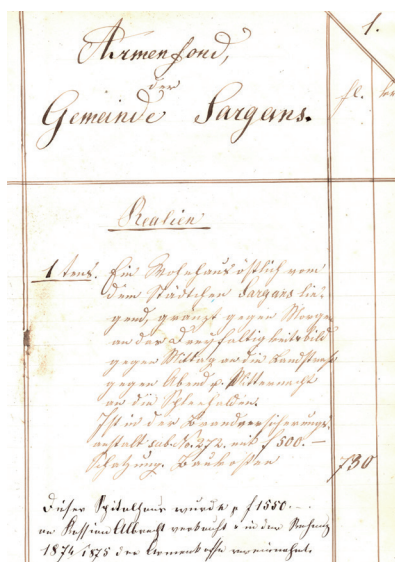 1.
Armenfond,
der
Gemeinde Sargans.
fl.
Realien
1tens. Ein Wohnhaus östlich vom
dem Städtchen Sargans lie-
gend, gränzt gegen Morgen
an das Dreyfaltigkeitsbild
gegen Mittag an die Landstraß
gegen Abend u. Mitternacht
an die Schlosshalden.
Ist in der Brandversicherungs-
anstalt sub. No. 272. mit f 500.–
Schatzung. Baukosten 730
Dieses Spitalhaus wurde p f 1550.–
an Kassian Albrecht verkauft & in der Rechnung
1874/1875 der Armenkasse vereinnahmt.